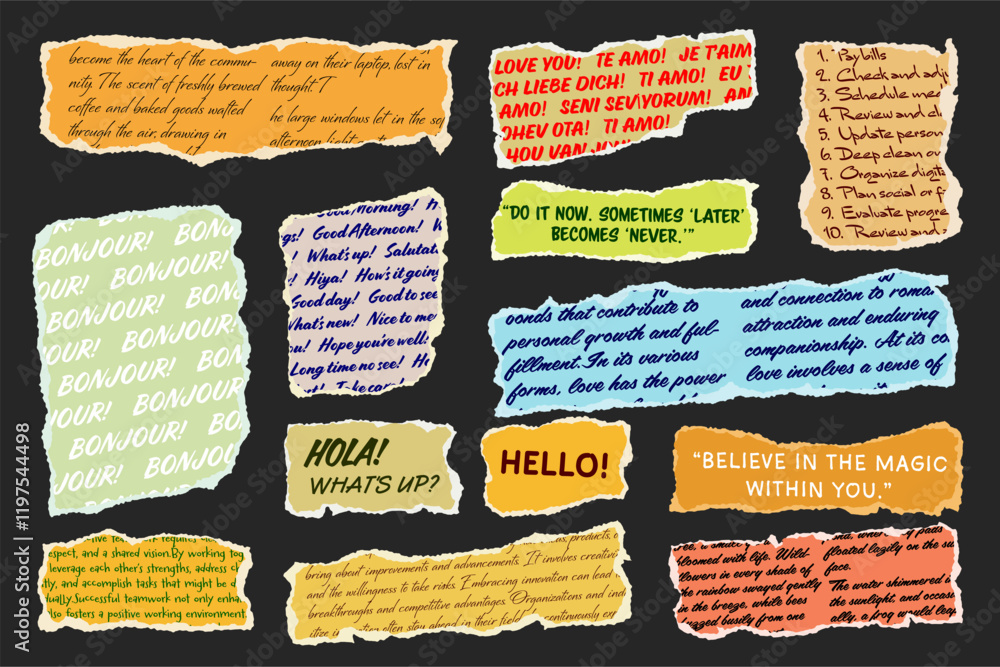 become the heart of the commu-
nity. The scent of freshly brewed
coffee and baked goods wafted
through the air, drawing in
away on their laptop, lost in
thought. T
he large windows let in the
afternoon light
LOVE YOU! TE AMO! JE T'AIM
CH LIEBE DICH! TI AMO! EU
AMO! SENI SEVIYORUM! AN
OHEV OTA! TI AMO!
HOU VAN
1. Pay bills
2. Check and adj
3. Schedule med
4. Review and cl
5. Update person
6. Deep clean ou
7. Organize digita
8. Plan social or f
9. Evaluate progre
10. Review and
"DO IT NOW. SOMETIMES 'LATER'
BECOMES 'NEVER.'"
BONJOUR! BON
BONJOUR!
OUR! BONJOUR!
BONJOUR! BON
OUR! BONJOUR!
BONJOUR! BO
JOUR! BONJOUR!
BONJOUR! BO
JOUR! BONJOUR!
Good Morning! H
gs! Good Afternoon! W
! What's up! Salutat
Hiya! How's it going
Good day! Good to see
What's new! Nice to me
ou! Hope you're well!
Long time no see! H
Take care!
oonds that contribute to
personal growth and ful-
fillment. In its various
forms, love has the power
and connection to roma
attraction and enduring
companionship. At its co
love involves a sense of
HOLA!
WHAT'S UP?
HELLO!
"BELIEVE IN THE MAGIC
WITHIN YOU."
spect, and a shared vision.By working tog
leverage each other's strengths, address ch
ity, and accomplish tasks that might be d
ually.Successful teamwork not only enha
so fosters a positive working environment,
products, o
bring about improvements and advancements. It involves creativi
and the willingness to take risks. Embracing innovation can lead
breakthroughs and competitive advantages. Organizations and indi
often stay ahead in their field continuously
bloomed with life. Wild-
flowers in every shade of
the rainbow swayed gently
in the breeze, while bees
buzzed busily from one
pads
floated lazily on the su
face.
The water shimmered i
the sunlight, and occasi
ally, a frog would leap
Adobe Stock | #1197544498